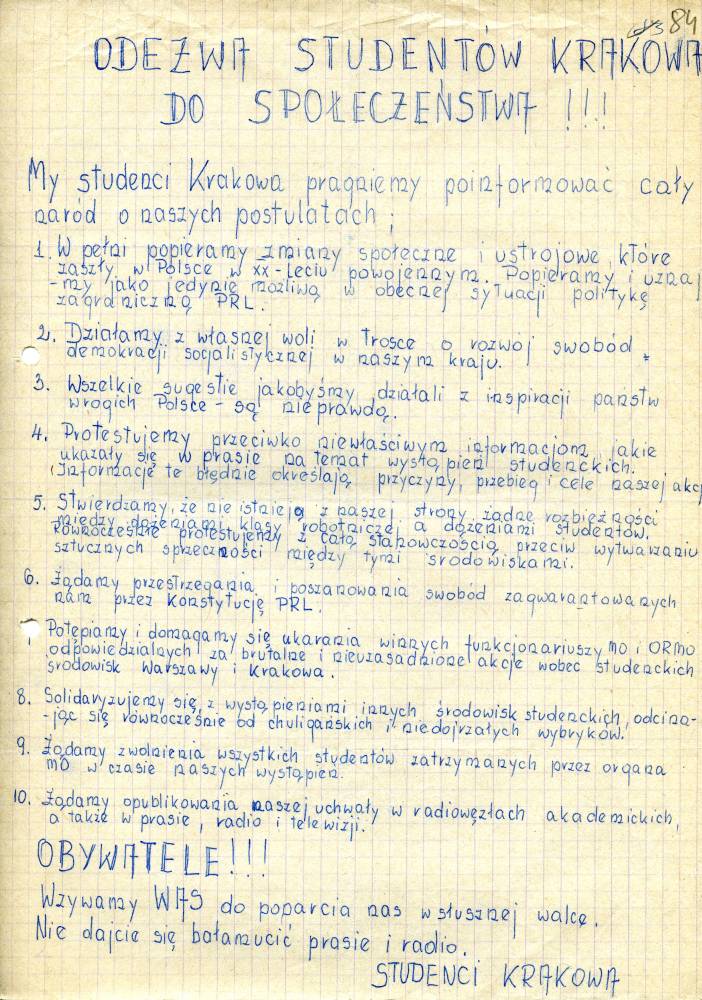 84
ODEZWA STUDENTÓW KRAKOWA
DO SPOŁECZEŃSTWA !!!
My studenci Krakowa pragniemy poinformować cały
naród o naszych postulatach ;
1. W pełni popieramy zmiany społeczne i ustrojowe, które
zaszły w Polsce w XX-leciu powojennym. Popieramy i uznaj
-my jako jedynie możliwą w obecnej sytuacji politykę
zagraniczną PRL.
2. Działamy z własnej woli w trosce o rozwój swobód
demokracji socjalistycznej w naszym kraju.
3. Wszelkie sugestie jakobyśmy działali z inspiracji państw
wrogich Polsce - są nieprawdą.
4. Protestujemy przeciwko niewłaściwym informacjom, jakie
ukazały się w prasie na temat wystąpień studenckich.
(Informacje te błędnie określają przyczyny, przebieg i cele naszej akcj
5. Stwierdzamy, że nie istnieją z naszej strony żadne rozbieżności
między dążeniami klasy robotniczej a dążeniami studentów.
Równocześnie protestujemy z całą stanowczością przeciw wytwarzaniu
sztucznych sprzeczności między tymi środowiskami.
6. Żądamy przestrzegania i poszanowania swobód zagwarantowanych
nam przez Konstytucję PRL.
Potępiamy i domagamy się ukarania winnych funkcjonariuszy MO i ORMO
odpowiedzialnych za brutalne i nieuzasadnione akcje wobec studenckich
środowisk Warszawy i Krakowa.
8. Solidaryzujemy się z wystąpieniami innych środowisk studenckich, odcina-
-jąc się równocześnie od chuligańskich i niedojrzałych wybryków.
9. Żądamy zwolnienia wszystkich studentów zatrzymanych przez organa
MO w czasie naszych wystąpień.
10. Żądamy opublikowania naszej uchwały w radiowęzłach akademickich,
a także w prasie, radio i telewizji.
OBYWATELE !!!
Wzywamy WAS do poparcia nas w słusznej walce.
Nie dajcie się bałamucić prasie i radio.
STUDENCI KRAKOWA